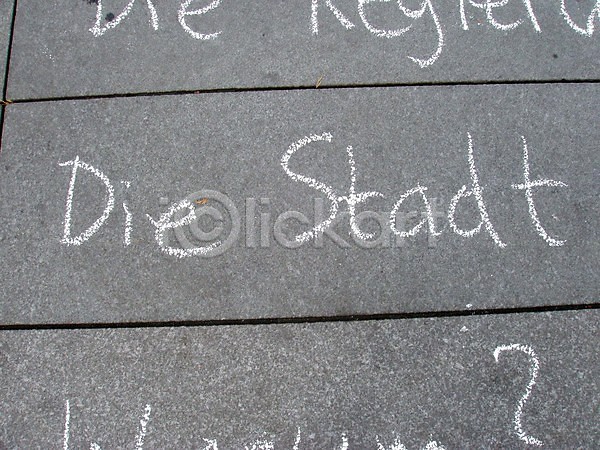 Die Regieru
Die Stadt
Warum?
iclickart